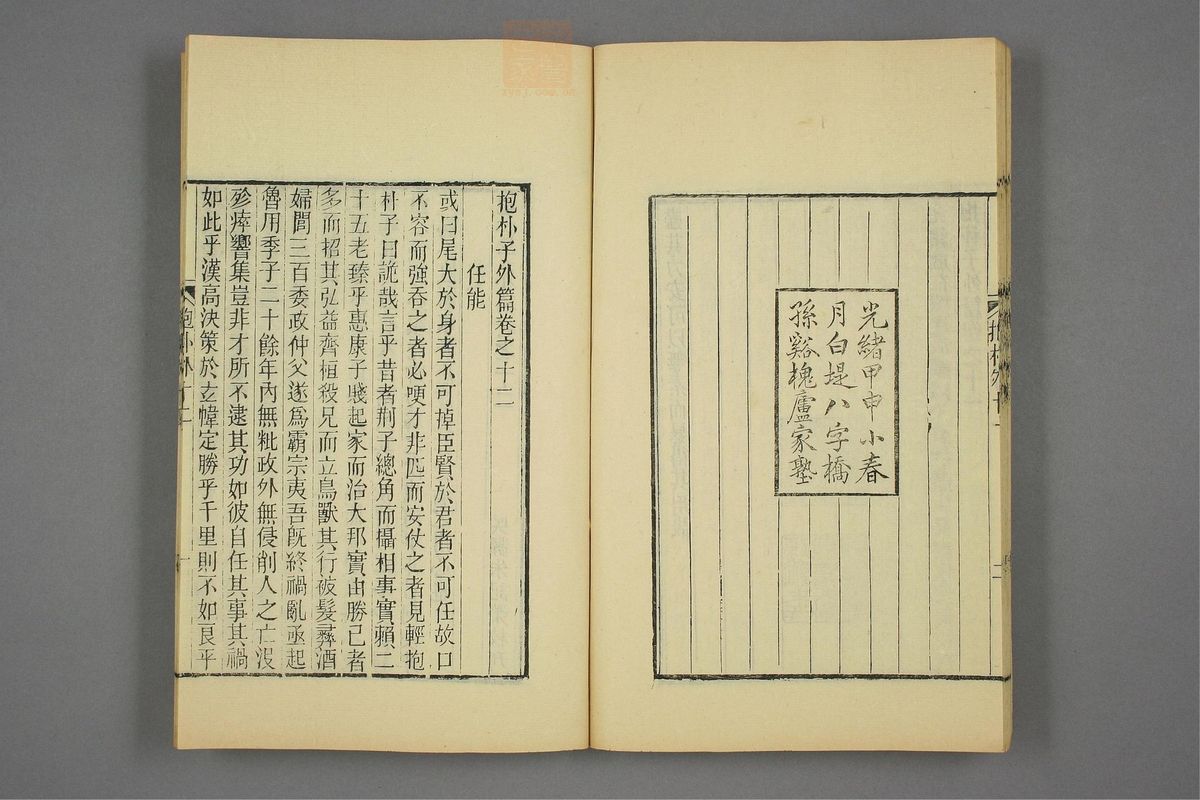 光緒甲申小春
月白堤八字橋
孫谿槐廬家塾
抱朴子外篇卷之十二
任能
或曰尾大於身者不可掉臣賢於君者不可任故口
不容而強吞之者必哽才非匹而安仗之者見輕抱
朴子曰詭哉言乎昔者荆子總角而攝相事實賴二
十五老臻乎惠康子賤起家而治大邦實由勝己者
多而招其弘益齊桓殺兄而立鳥獸其行被髮彝酒
婦閭三百委政仲父遂爲霸宗夷吾旣終禍亂亟起
魯用季子二十餘年內無粃政外無侵削人之亡沒
殄瘁響集豈非才所不逮其功如彼自任其事其禍
如此乎漢高決策於玄幃定勝乎千里則不如良平
抱朴外十二